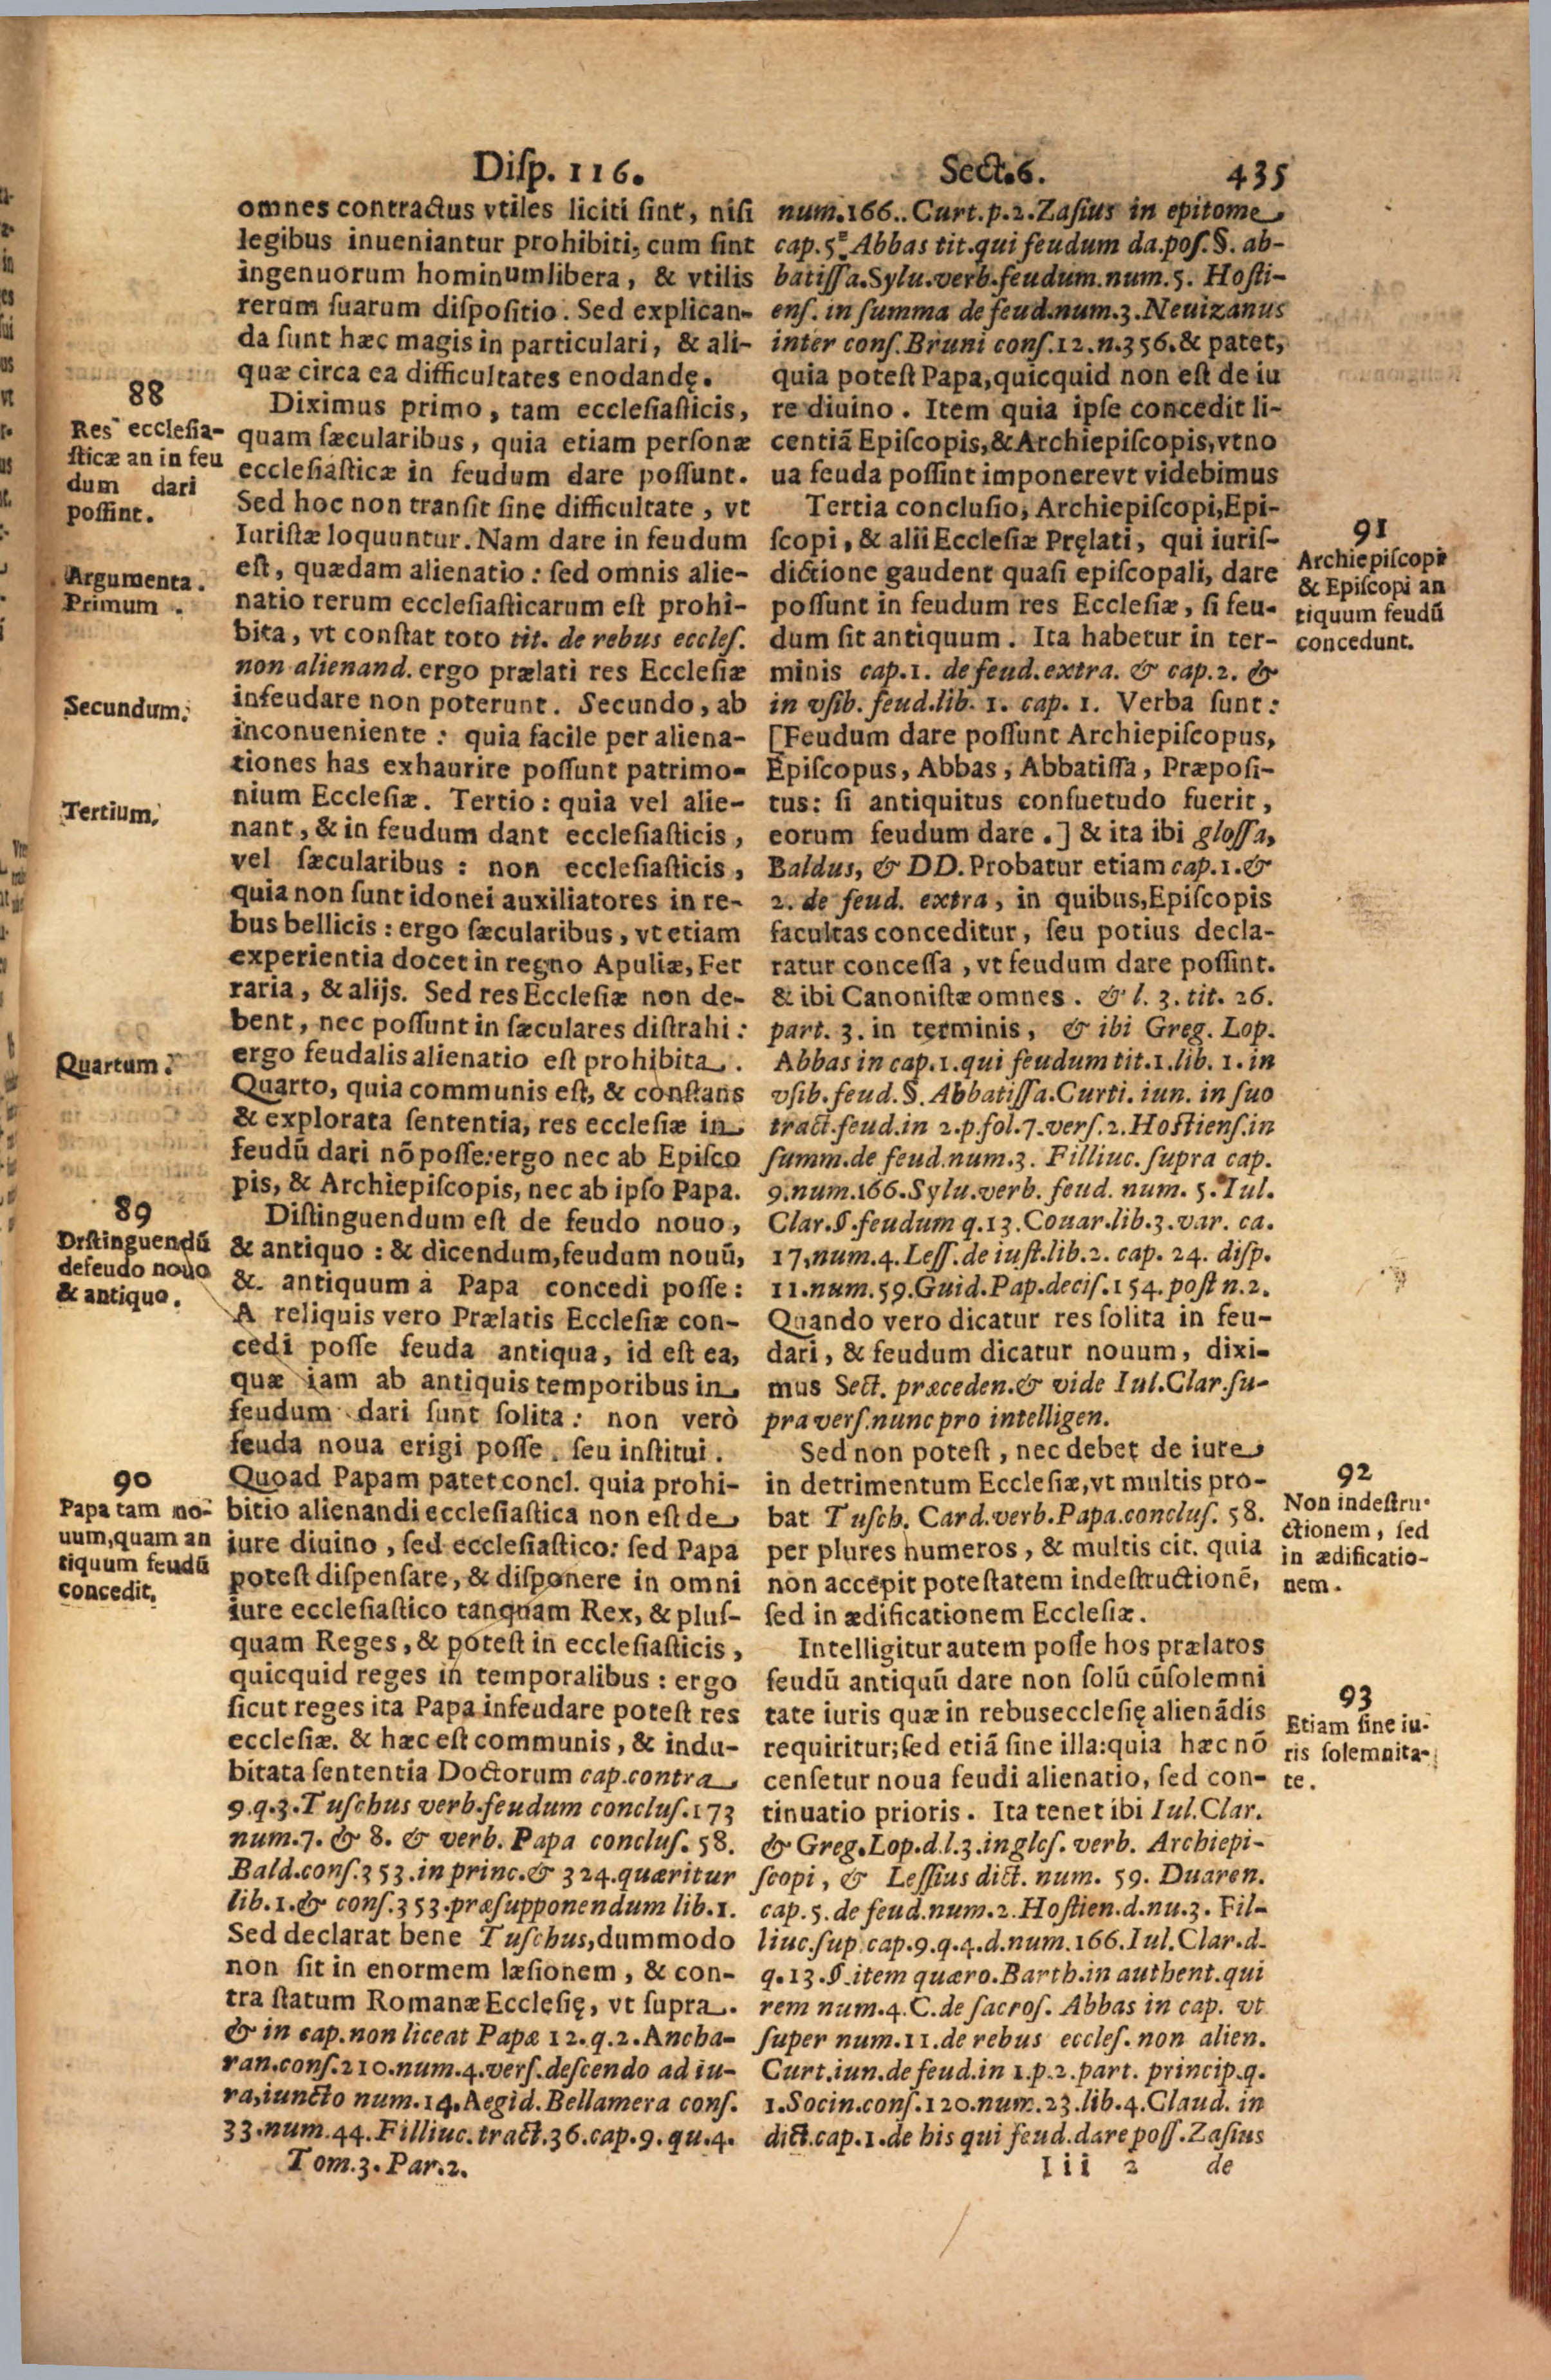 Diſp. 116. Sect. 6. 435
omnes contractus vtiles liciti ſint, niſi
legibus inueniantur prohibiti, cum ſint
ingenuorum hominum libera, & vtilis
rerum ſuarum diſpoſitio. Sed explican-
da ſunt hæc magis in particulari, & ali-
quæ circa ea difficultates enodandę.
88
Res ecclesia-
ſticæ an in feu
dum dari
poſſint.
Diximus primo, tam eccleſiaſticis,
quam ſæcularibus, quia etiam perſonæ
eccleſiaſticæ in feudum dare poſſunt.
Sed hoc non tranſit ſine difficultate, vt
Iuriſtæ loquuntur. Nam dare in feudum
Argumenta.
Primum.
eſt, quædam alienatio: ſed omnis alie-
natio rerum eccleſiaſticarum eſt prohi-
bita, vt conſtat toto tit. de rebus eccleſ.
non alienand. ergo prælati res Eccleſiæ
Secundum.
infeudare non poterunt. Secundo, ab
inconueniente: quia facile per aliena-
tiones has exhaurire poſſunt patrimo-
Tertium.
nium Eccleſiæ. Tertio: quia vel alie-
nant, & in feudum dant eccleſiaſticis,
vel ſæcularibus: non eccleſiaſticis,
quia non ſunt idonei auxiliatores in re-
bus bellicis: ergo ſæcularibus, vt etiam
experientia docet in regno Apuliæ, Fer
raria, & alijs. Sed res Eccleſiæ non de-
bent, nec poſſunt in ſæculares diſtrahi:
Quartum.
ergo feudalis alienatio eſt prohibita.
Quarto, quia communis eſt, & conſtans
& explorata ſententia, res eccleſiæ in
feudū dari nō poſſe: ergo nec ab Epiſco
pis, & Archiepiſcopis, nec ab ipſo Papa.
89
Drſtinguendū
defeudo nouo
& antiquo.
Diſtinguendum eſt de feudo nouo,
& antiquo: & dicendum, feudum nouū,
&. antiquum à Papa concedi poſſe:
A reliquis vero Prælatis Eccleſiæ con-
cedi poſſe feuda antiqua, id eſt ea,
quæ iam ab antiquis temporibus in
feudum dari ſunt ſolita: non verò
feuda noua erigi poſſe, ſeu inſtitui.
90
Papa tam no-
uum, quam an
tiquum feudū
concedit.
Quoad Papam patet concl. quia prohi-
bitio alienandi eccleſiaſtica non eſt de
iure diuino, ſed eccleſiaſtico: ſed Papa
poteſt diſpenſare, & diſponere in omni
iure eccleſiaſtico tanquam Rex, & pluſ-
quam Reges, & poteſt in eccleſiaſticis,
quicquid reges in temporalibus: ergo
ſicut reges ita Papa infeudare poteſt res
eccleſiæ. & hæc eſt communis, & indu-
bitata ſententia Doctorum cap. contra
9. q. 3. Tuſchus verb. feudum concluſ. 173
num. 7. & 8. & verb. Papa concluſ. 58.
Bald. conſ. 353. in princ. & 324. quæritur
lib. 1. & conſ. 353. præſupponendum lib. 1.
Sed declarat bene Tuſchus, dummodo
non ſit in enormem læſionem, & con-
tra ſtatum Romanæ Eccleſię, vt ſupra.
& in cap. non liceat Papæ 12. q. 2. Ancha-
ran. conſ. 210. num. 4. verſ. deſcendo ad iu-
ra, iuncto num. 14. Aegid. Bellamera conſ.
33. num. 44. Filliuc. tract. 36. cap. 9. qu. 4.
Tom. 3. Par. 2.
num. 166.. Curt. p. 2. Zaſius in epitome
cap. 5. Abbas tit. qui feudum da. poſ. §. ab-
batiſſa. Sylu. verb. feudum. num. 5. Hoſti-
enſ. in ſumma de feud. num. 3. Neuizanus
inter conſ. Bruni conſ. 12. n. 356. & patet,
quia poteſt Papa, quicquid non eſt de iu
re diuino. Item quia ipſe concedit li-
centiā Epiſcopis, & Archiepiſcopis, vt no
ua feuda poſſint imponere vt videbimus
91
Archiepiſcopi
& Epiſcopi an
tiquum feudū
concedunt.
Tertia concluſio, Archiepiſcopi, Epi-
ſcopi, & alii Eccleſiæ Pręlati, qui iuriſ-
dictione gaudent quaſi epiſcopali, dare
poſſunt in feudum res Eccleſiæ, ſi feu-
dum ſit antiquum. Ita habetur in ter-
minis cap. 1. de feud. extra. & cap. 2. &
in vſib. feud. lib. 1. cap. 1. Verba ſunt:
[Feudum dare poſſunt Archiepiſcopus,
Epiſcopus, Abbas, Abbatiſſa, Præpoſi-
tus: ſi antiquitus conſuetudo fuerit,
eorum feudum dare.] & ita ibi gloſſa,
Baldus, & DD. Probatur etiam cap. 1. &
2. de feud. extra, in quibus, Epiſcopis
facultas conceditur, ſeu potius decla-
ratur conceſſa, vt feudum dare poſſint.
& ibi Canoniſtæ omnes. & l. 3. tit. 26.
part. 3. in terminis, & ibi Greg. Lop.
Abbas in cap. 1. qui feudum tit. 1. lib. 1. in
vſib. feud. §. Abbatiſſa. Curti. iun. in ſuo
tract. feud. in 2. p. fol. 7. verſ. 2. Hoſtienſ. in
ſumm. de feud. num. 3. Filliuc. ſupra cap.
9. num. 166. Sylu. verb. feud. num. 5. Iul.
Clar. §. feudum q. 13. Couar. lib. 3. var. ca.
17, num. 4. Leſſ. de iuſt. lib. 2. cap. 24. diſp.
11. num. 59. Guid. Pap. deciſ. 154. poſt n. 2.
Quando vero dicatur res ſolita in feu-
dari, & feudum dicatur nouum, dixi-
mus Sect. præceden. & vide Iul. Clar. ſu-
pra verſ. nunc pro intelligen.
92
Non indeſtru-
ctionem, ſed
in ædificatio-
nem.
Sed non poteſt, nec debet de iure
in detrimentum Eccleſiæ, vt multis pro-
bat Tuſch. Card. verb. Papa. concluſ. 58.
per plures numeros, & multis cit. quia
non accepit poteſtatem indeſtructionē,
ſed in ædificationem Eccleſiæ.
93
Etiam ſine iu-
ris ſolemnita-
te.
Intelligitur autem poſſe hos prælatos
feudū antiquū dare non ſolū cū ſolemni
tate iuris quæ in rebus eccleſię alienādis
requiritur; ſed etiā ſine illa: quia hæc nō
cenſetur noua feudi alienatio, ſed con-
tinuatio prioris. Ita tenet ibi Iul. Clar.
& Greg. Lop. d. l. 3. in gloſ. verb. Archiepi-
ſcopi, & Leſſius dict. num. 59. Duaren.
cap. 5. de feud. num. 2. Hoſtien. d. nu. 3. Fil-
liuc. ſup. cap. 9. q. 4. d. num. 166. Iul. Clar. d.
q. 13. §. item quæro. Barth. in authent. qui
rem num. 4. C. de ſacroſ. Abbas in cap. vt
ſuper num. 11. de rebus eccleſ. non alien.
Curt. iun. de feud. in 1. p. 2. part. princip. q.
1. Socin. conſ. 120. num. 23. lib. 4. Claud. in
dict. cap. 1. de his qui feud. dare poſſ. Zaſius
Iii 2 de